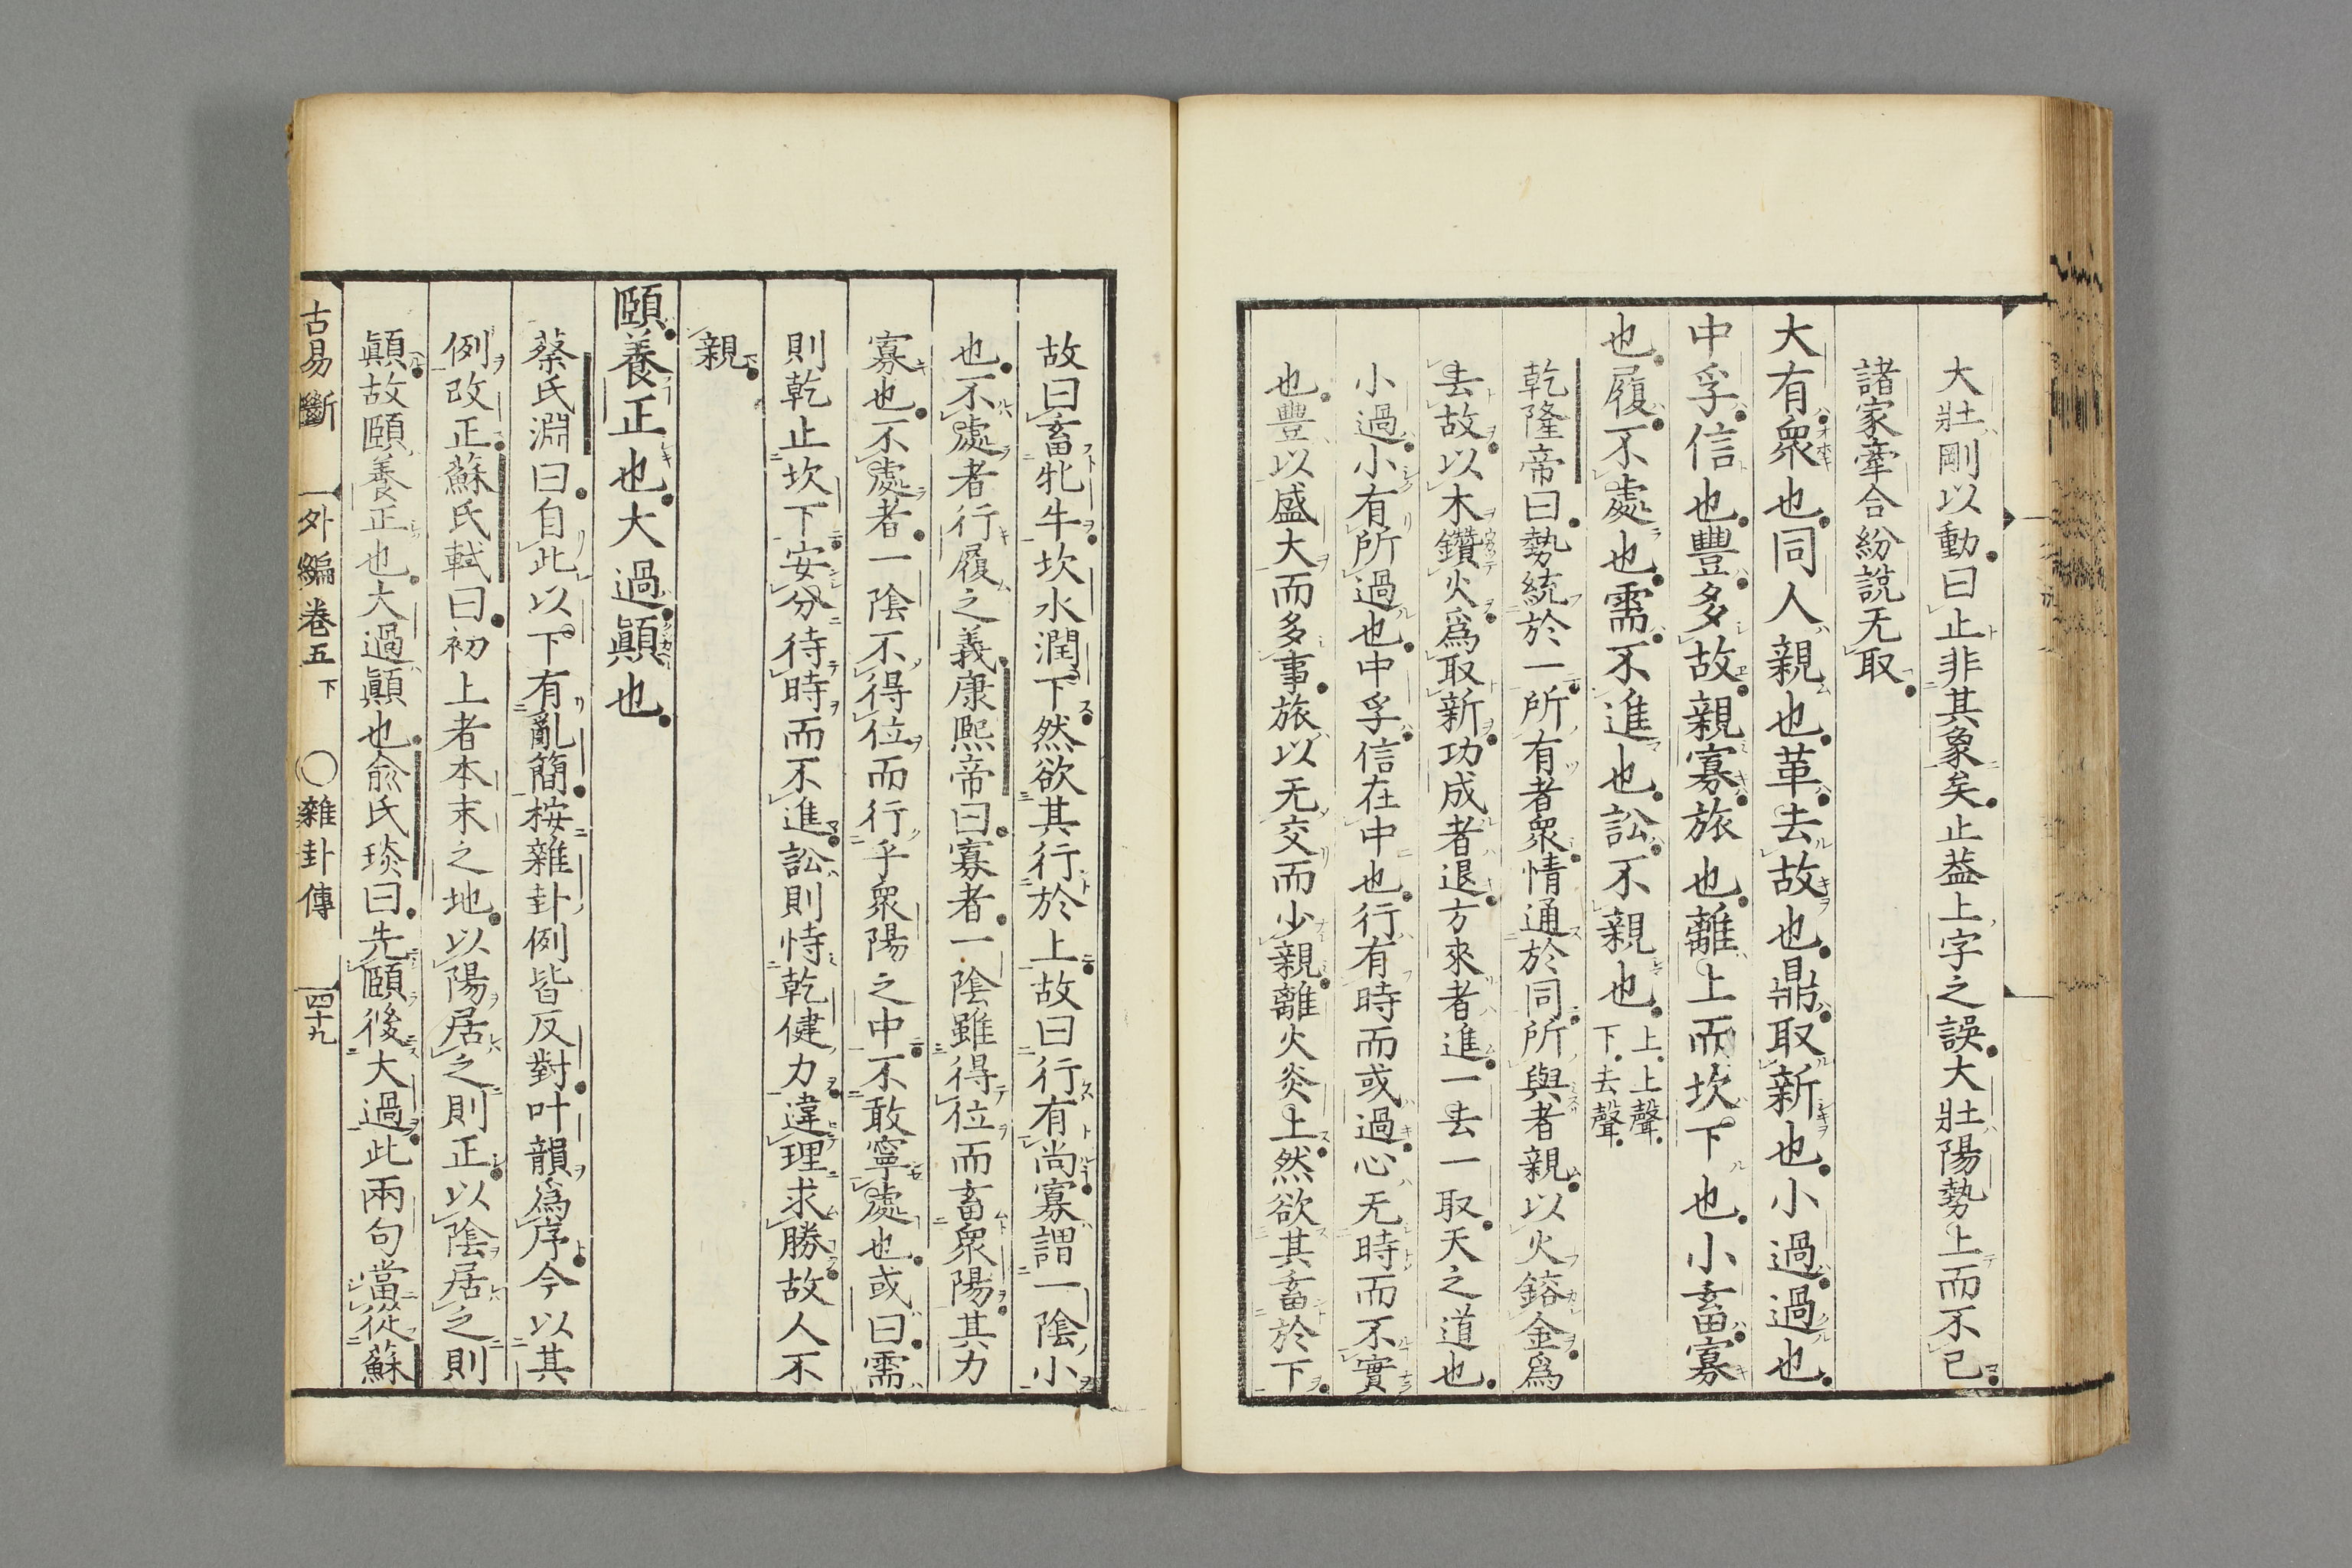 大壯剛以動曰止非其象矣止葢上字之誤大壯陽勢上而不已
諸家牽合紛說无取
大有衆也同人親也革去故也鼎取新也小過過也
中孚信也豐多故親寡旅也離上而坎下也小畜寡
也履不處也需不進也訟不親也上上聲下去聲
乾隆帝曰勢統於一所有者衆情通於同所與者親以火鎔金爲
去故以木鑽火爲取新功成者退方來者進一去一取天之道也
小過小有所過也中孚信在中也行有時而或過心无時而不實
也豐以盛大而多事旅以无交而少親離火炎上然欲其畜於下
故曰畜牝牛坎水潤下然欲其行於上故曰行有尚寡謂一陰小
也不處者行履之義康熙帝曰寡者一陰雖得位而畜衆陽其力
寡也不處者一陰不得位而行乎衆陽之中不敢寧處也或曰需
則乾止坎下安分待時而不進訟則恃乾健力違理求勝故人不
親
頤養正也大過顚也
蔡氏淵曰自此以下有亂簡桉雜卦例皆反對叶韻爲序今以其
例改正蘇氏軾曰初上者本末之地以陽居之則正以陰居之則
顚故頤養正也大過顚也兪氏琰曰先頤後大過此兩句當從蘇
古易斷 外編卷五下 ○雜卦傳 四十九